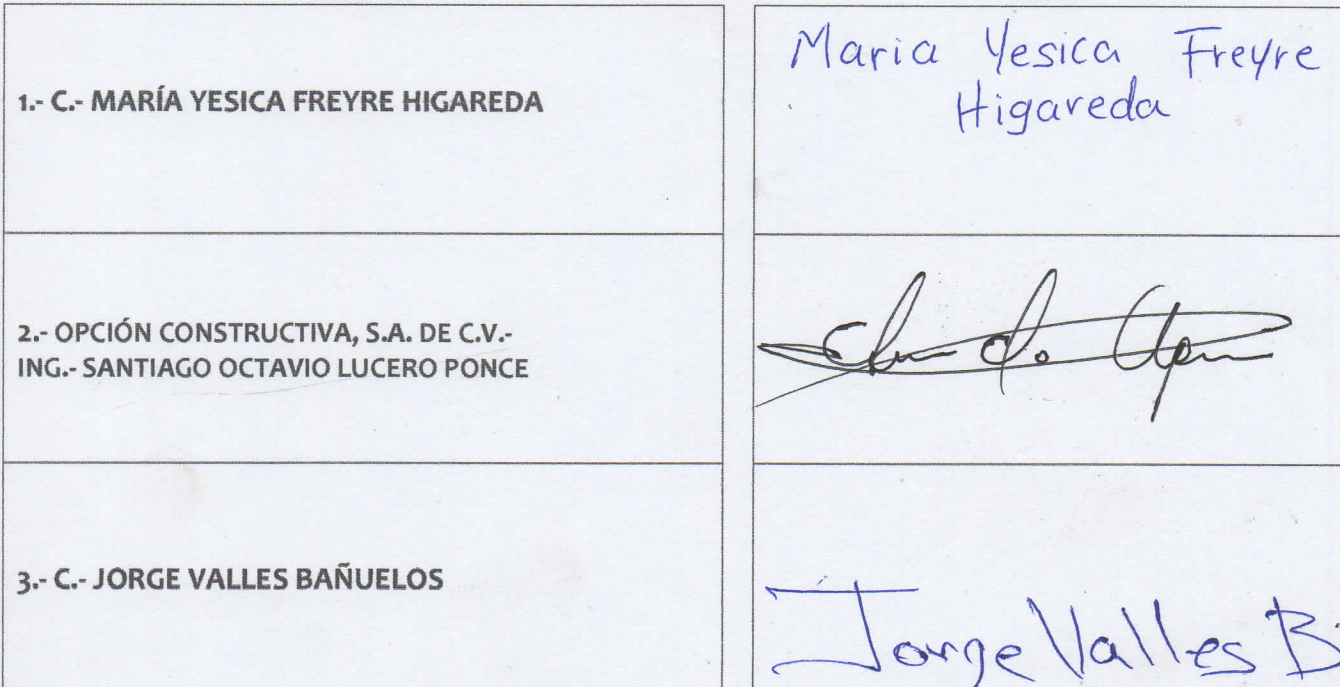 1.- C.- MARÍA YESICA FREYRE HIGAREDA
Maria Yesica Freyre
Higareda
2.- OPCIÓN CONSTRUCTIVA, S.A. DE C.V.-
ING.- SANTIAGO OCTAVIO LUCERO PONCE
3.- C.- JORGE VALLES BAÑUELOS
Jorge Valles B